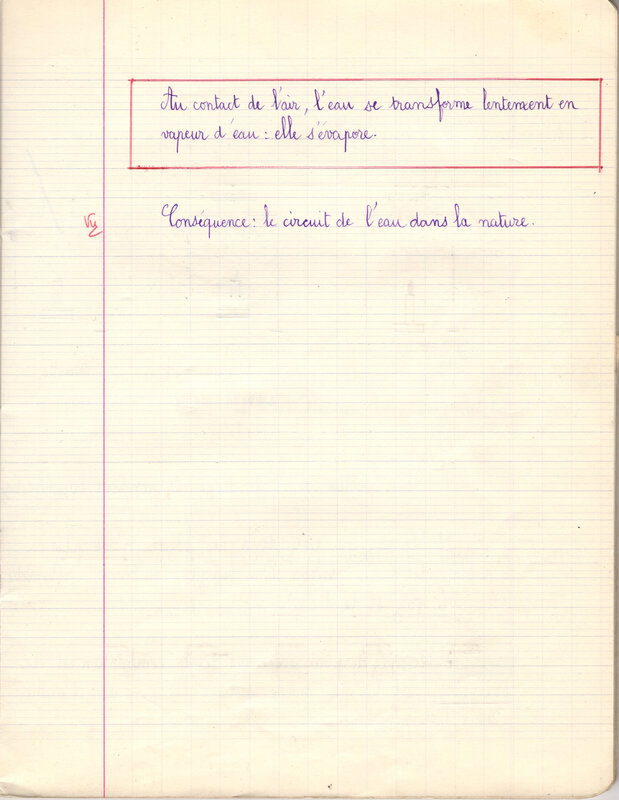 Au contact de l'air, l'eau se transforme lentement en
vapeur d'eau : elle s'évapore.
Vu
Conséquence : le circuit de l'eau dans la nature.